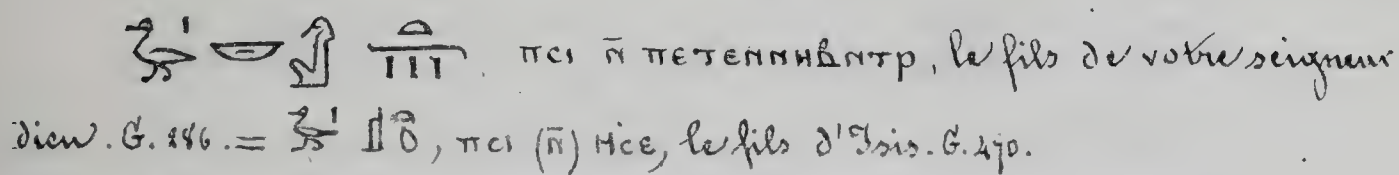 𓅭𓏤𓎟𓀭 ⲡⲥⲓ ⲛ̄ ⲡⲉⲧⲉⲛⲛⲏⲃⲛⲧⲣ, le fils de votre seigneur
dieu. G. 286. = 𓅭𓏤 𓊨𓏏𓆇, ⲡⲥⲓ (ⲛ̄) ⲏⲥⲉ, le fils d'Isis. G. 470.